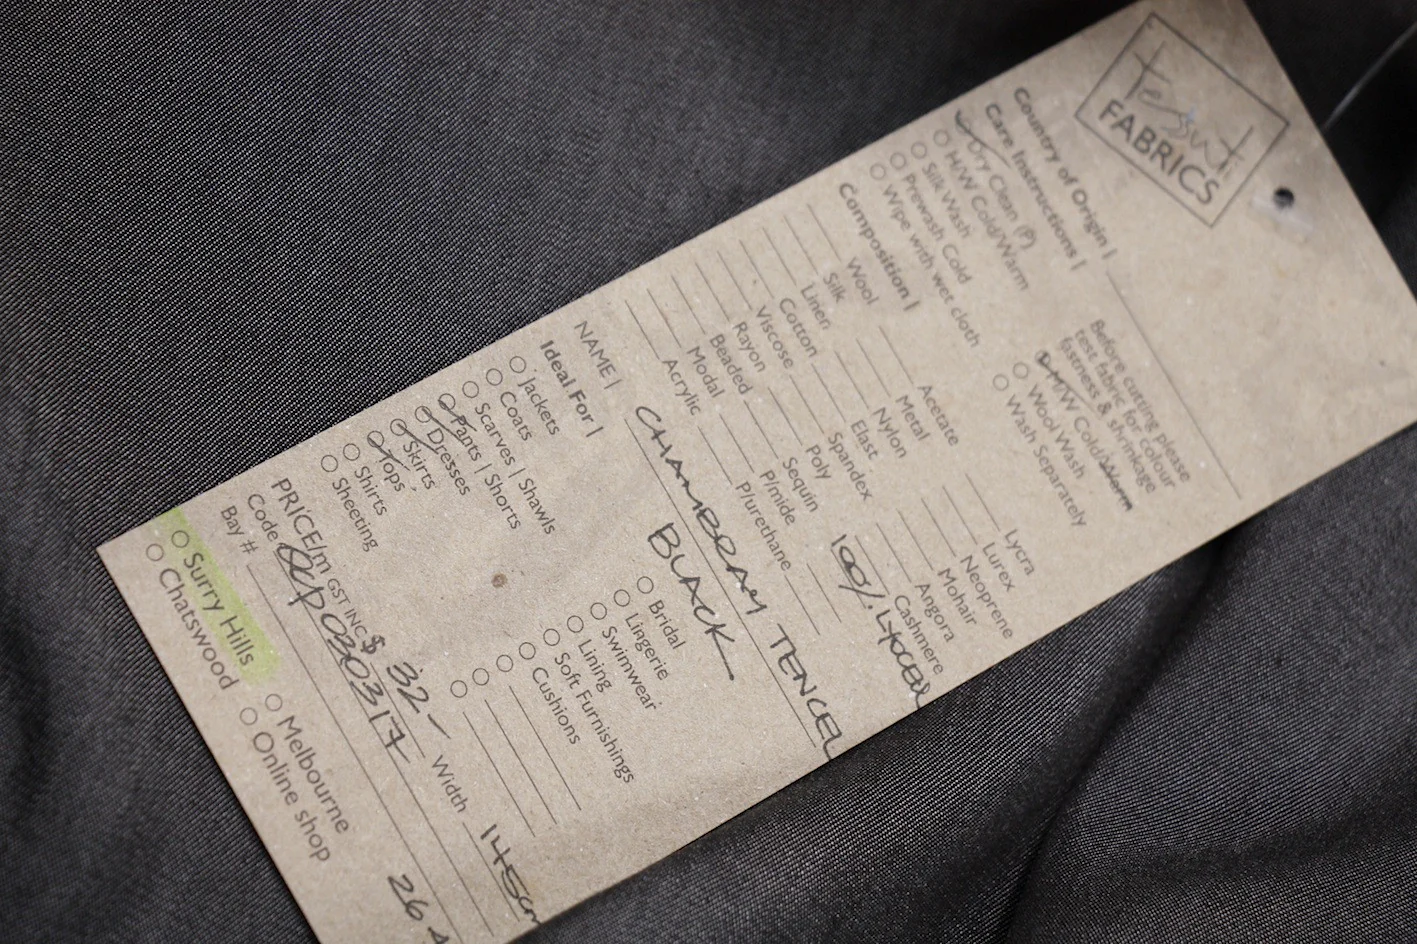 tessuti
FABRICS
Country of Origin |
Care Instructions |
Dry Clean (P)
H/W Cold/Warm
Silk Wash
Prewash Cold
Wipe with wet cloth
Before cutting please
test fabric for colour
fastness & shrinkage
M/W Cold/Warm
Wool Wash
Wash Separately
Composition |
Wool
Silk
Linen
Cotton
Viscose
Rayon
Beaded
Modal
Acrylic
Acetate
Metal
Nylon
Elast
Spandex
Poly
Sequin
P/mide
P/urethane
Lycra
Lurex
Neoprene
Mohair
Angora
Cashmere
100%. LYOCELL
NAME | CHAMBRAY TENCEL
BLACK
Ideal For |
Jackets
Coats
Scarves | Shawls
Pants | Shorts
Dresses
Skirts
Tops
Shirts
Sheeting
Bridal
Lingerie
Swimwear
Lining
Soft Furnishings
Cushions
PRICE/m GST INC $ 32- Width 145cm
Code
Bay #
Surry Hills
Chatswood
Melbourne
Online shop